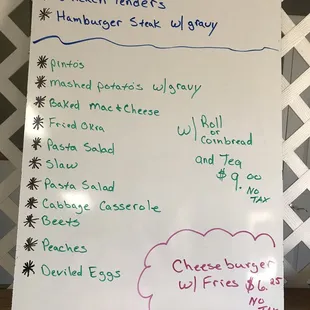 Tenders
* Hamburger Steak w/ gravy
* pintos
* mashed potato's w/gravy
* Baked Mac + Cheese
* Fried Okra
* Pasta Salad
* Slaw
* Pasta Salad
* Cabbage Casserole
* Beets
* Peaches
* Deviled Eggs
w/ Roll
or
Cornbread
and Tea
$9.00
NO
TAX
Cheeseburger
w/ Fries $6.25
NO
TAX